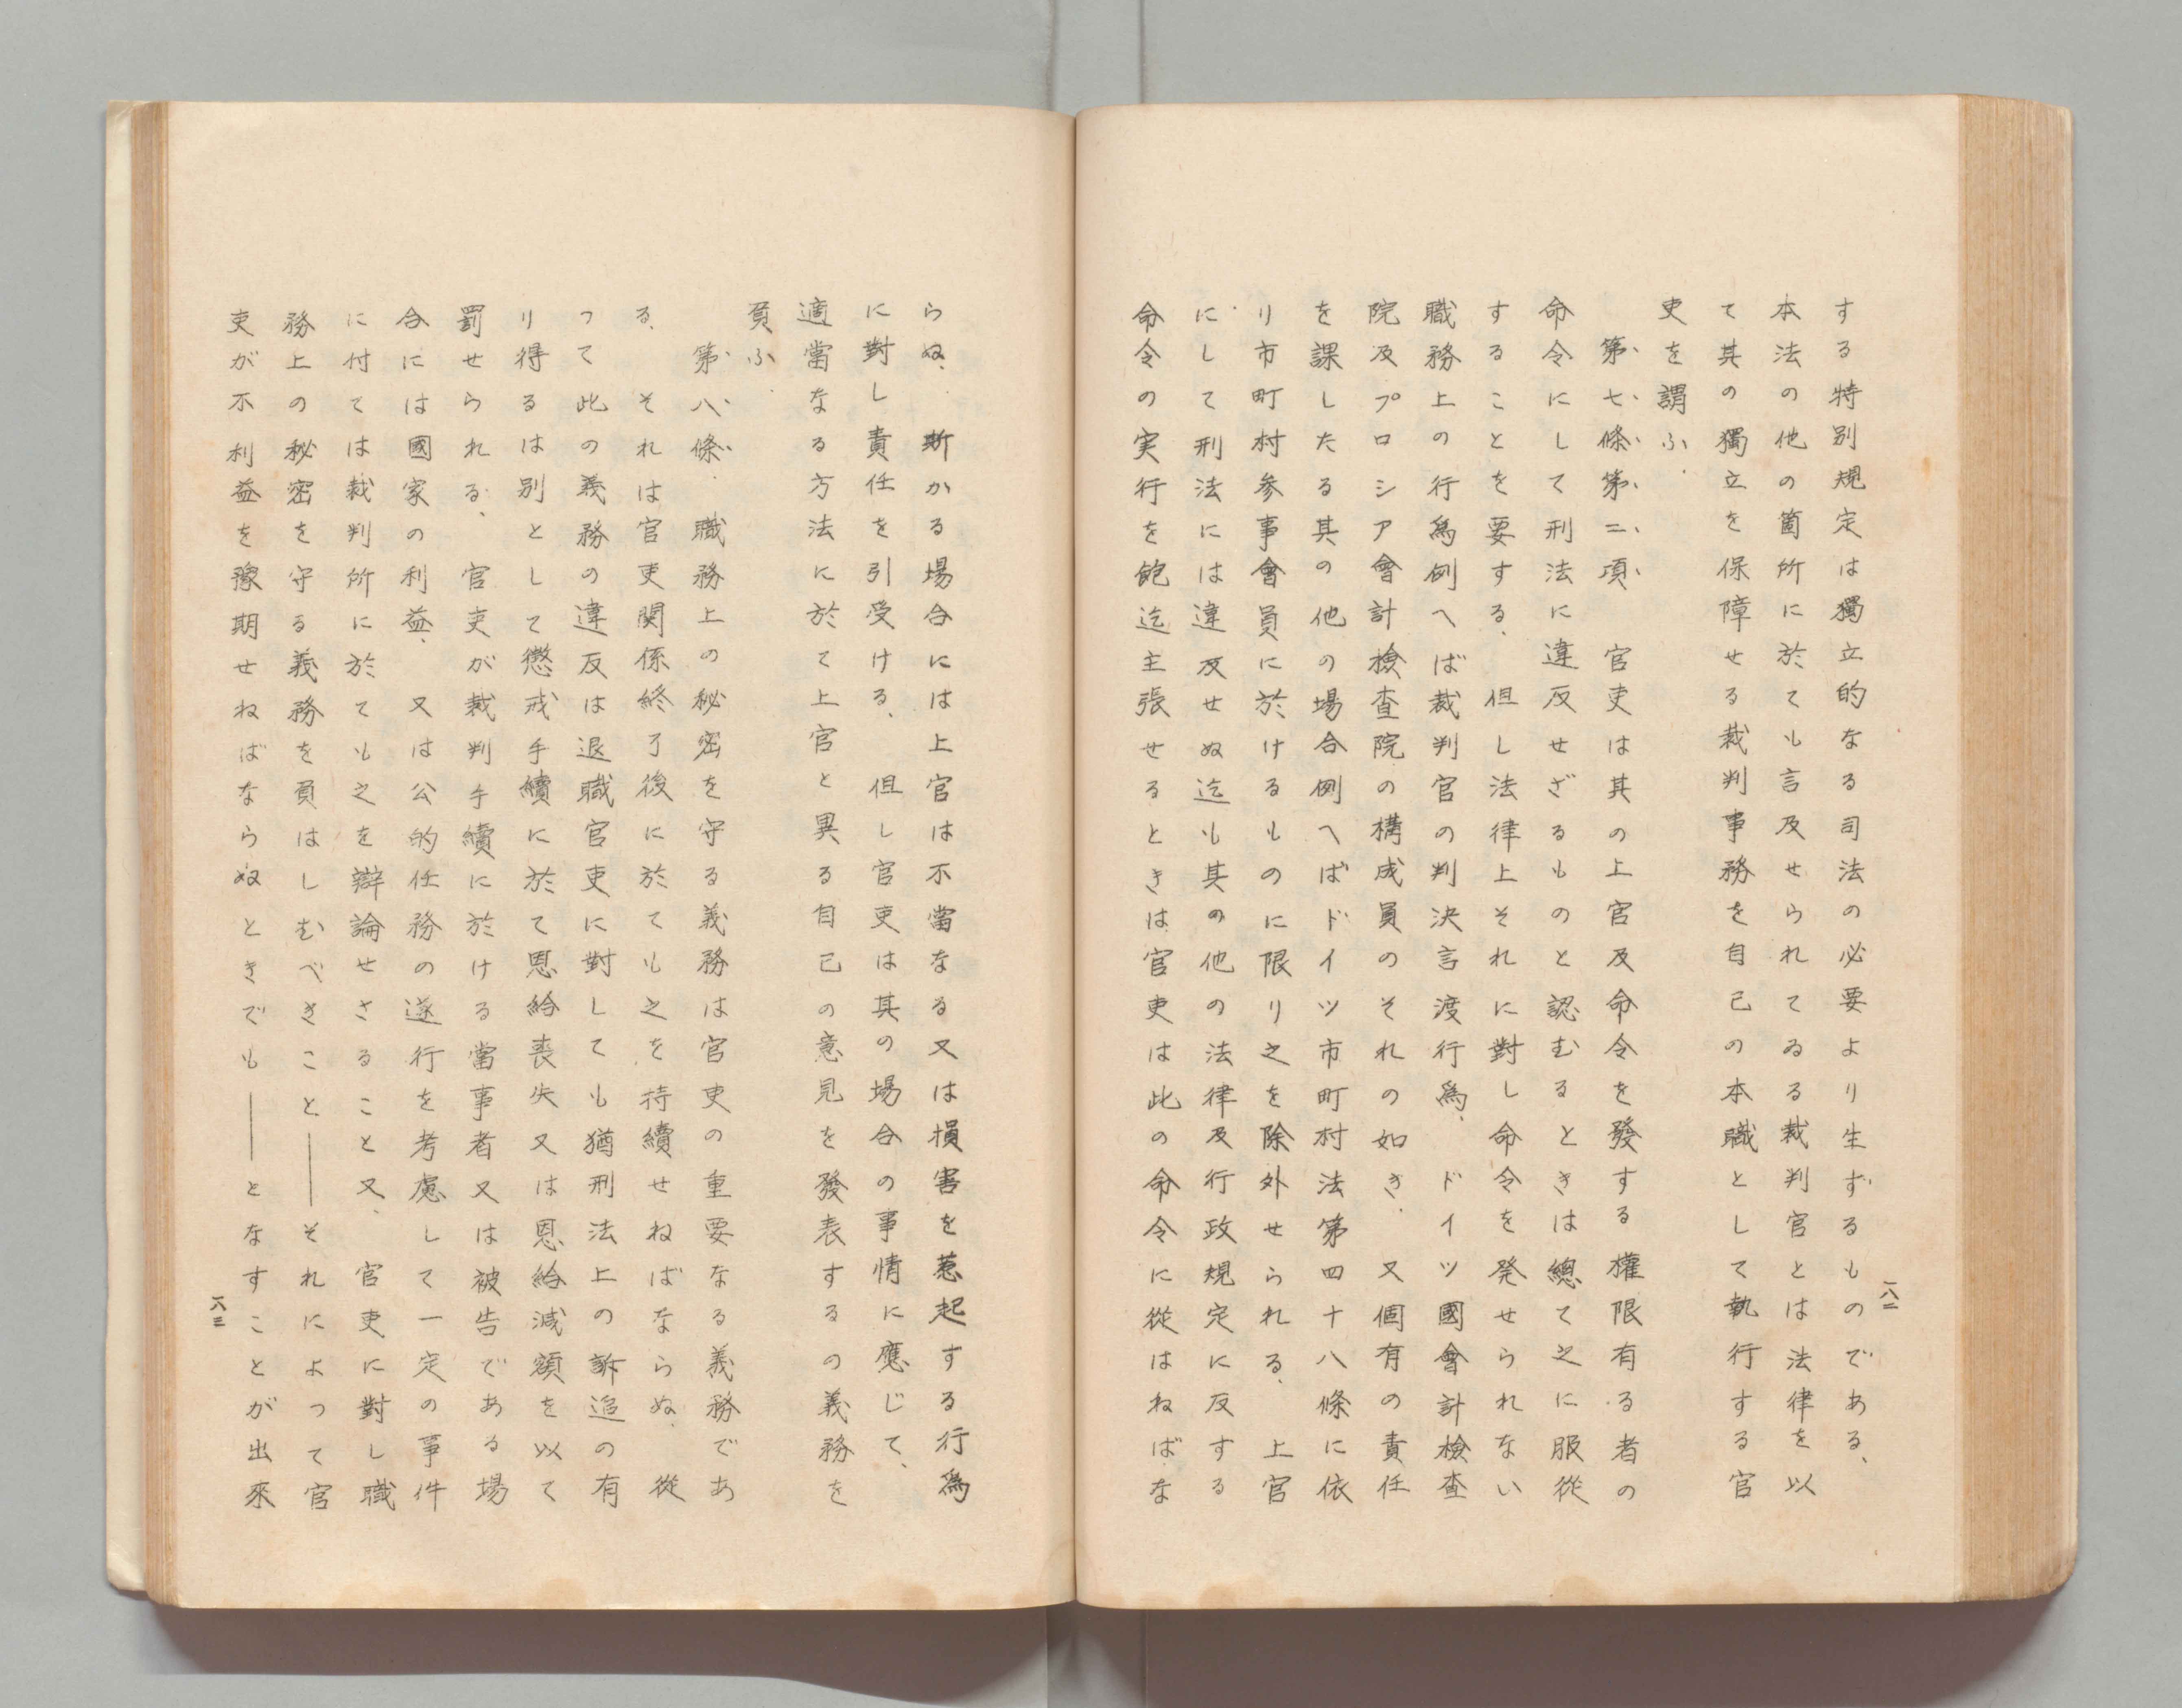 する特別規定は獨立的なる司法の必要より生ずるものである、
本法の他の箇所に於ても言及せられてゐる裁判官とは法律を以
て其の獨立を保障せる裁判事務を自己の本職として執行する官
吏を謂ふ、
第七條第二項　官吏は其の上官及命令を發する權限有る者の
命令にして刑法に違反せざるものと認むるときは總て之に服從
することを要する、但し法律上それに對し命令を発せられない
職務上の行爲例へば裁判官の判決言渡行爲、ドイツ國會計檢査
院及プロシア會計檢査院の構成員のそれの如き、又個有の責任
を課したる其の他の場合例へばドイツ市町村法第四十八條に依
り市町村参事會員に於けるものに限り之を除外せられる、上官
にして刑法には違反せぬ迄も其の他の法律及行政規定に反する
命令の実行を飽迄主張せるときは官吏は此の命令に從はねばな
一八二
らぬ、斯かる場合には上官は不當なる又は損害を惹起する行爲
に對し責任を引受ける、但し官吏は其の場合の事情に應じて、
適當なる方法に於て上官と異る自己の意見を發表するの義務を
負ふ、
第八條、職務上の秘密を守る義務は官吏の重要なる義務であ
る、それは官吏関係終了後に於ても之を持續せねばならぬ、從
つて此の義務の違反は退職官吏に對しても猶刑法上の訴追の有
り得るは別として懲戒手續に於て恩給喪失又は恩給減額を以て
罰せられる、官吏が裁判手續に於ける當事者又は被告である場
合には國家の利益、又は公的任務の遂行を考慮して一定の事件
に付ては裁判所に於ても之を辯論せさること又、官吏に對し職
務上の秘密を守る義務を負はしむべきこと――それによつて官
吏が不利益を豫期せねばならぬときでも――となすことが出來
一八三